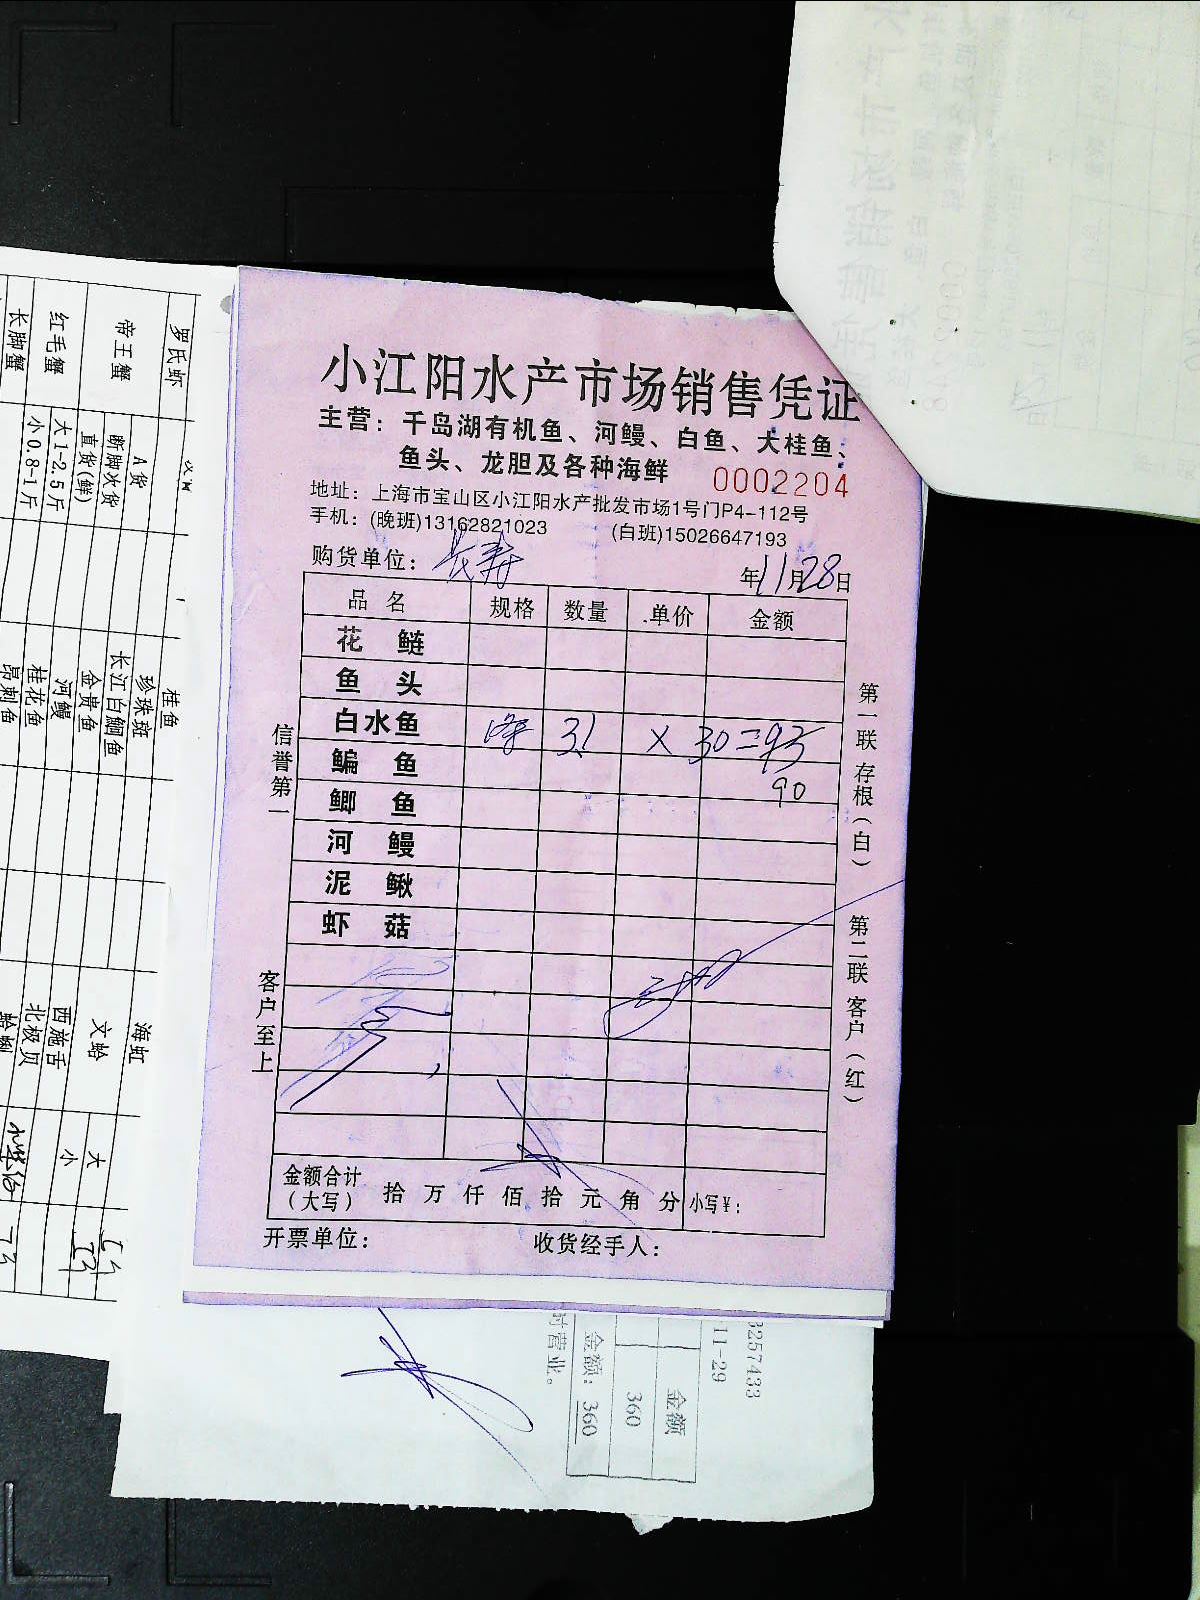 小江阳水产市场销售凭证
主营：千岛湖有机鱼、河鳗、白鱼、大桂鱼、
鱼头、龙胆及各种海鲜 0002204
地址：上海市宝山区小江阳水产批发市场1号门P4-112号
手机：(晚班)13162821023 (白班)15026647193
购货单位：长寿 年11月28日
品名 规格 数量 单价 金额
花鲢
鱼头
白水鱼 31 × 30=93
鳊鱼 90
鲫鱼
河鳗
泥鳅
虾菇
金额合计（大写） 拾万仟佰拾元角分 小写¥：
开票单位： 收货经手人：
信誉第一
客户至上
第一联 存根（白）
第二联 客户（红）
罗氏虾
帝王蟹
A货
断脚次货
直货(鲜)
红毛蟹
大1-2.5斤
长脚蟹
小0.8-1斤
桂鱼
珍珠斑
长江白鮰鱼
金贵鱼
河鳗
桂花鱼
昂刺鱼
海虹
文蛤
大
小
西施舌
北极贝
3257433
11-29
金额
360
金额：360
时营业。